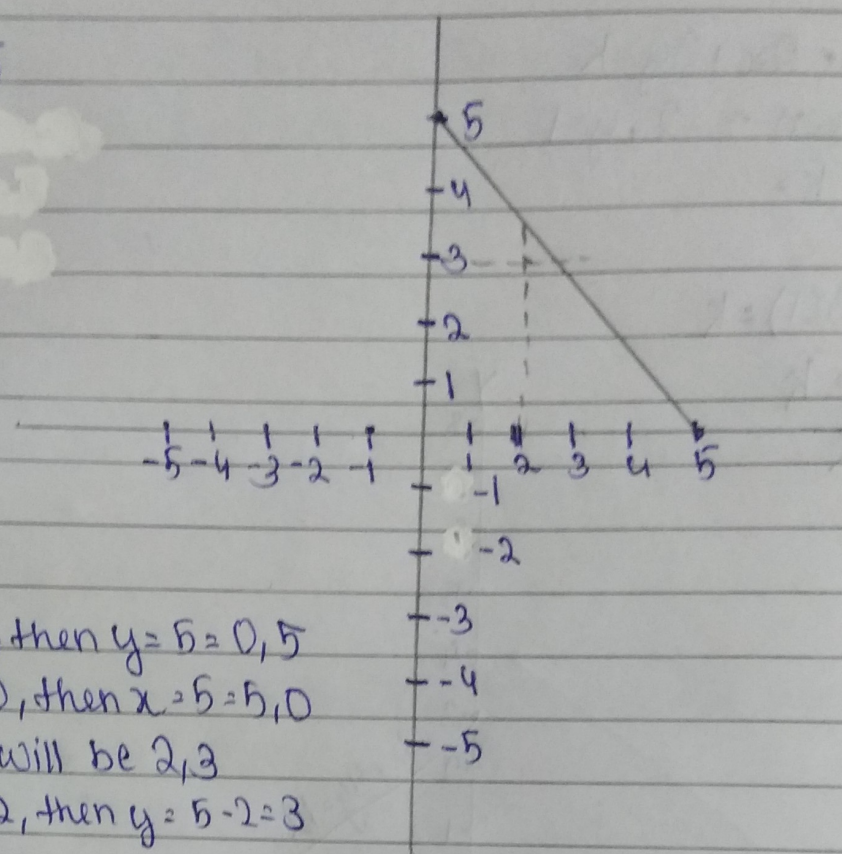 5
4
3
2
1
-5 -4 -3 -2 -1 1 2 3 4 5
-1
-2
-3
-4
-5
then y = 5 = 0,5
, then x = 5 = 5,0
will be 2,3
2, then y = 5 - 2 = 3